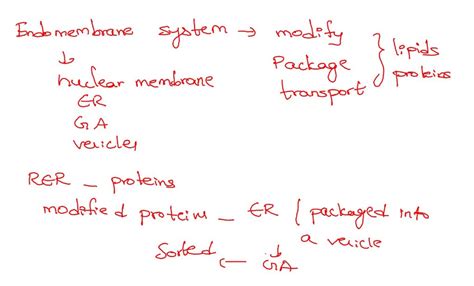 Endomembrane system → modify
Package
transport
} lipids
proteins
↓
nuclear membrane
ER
GA
vesicles
RER – proteins
modified proteins – ER / packaged into
a vesicle
↓
Sorted ← GA